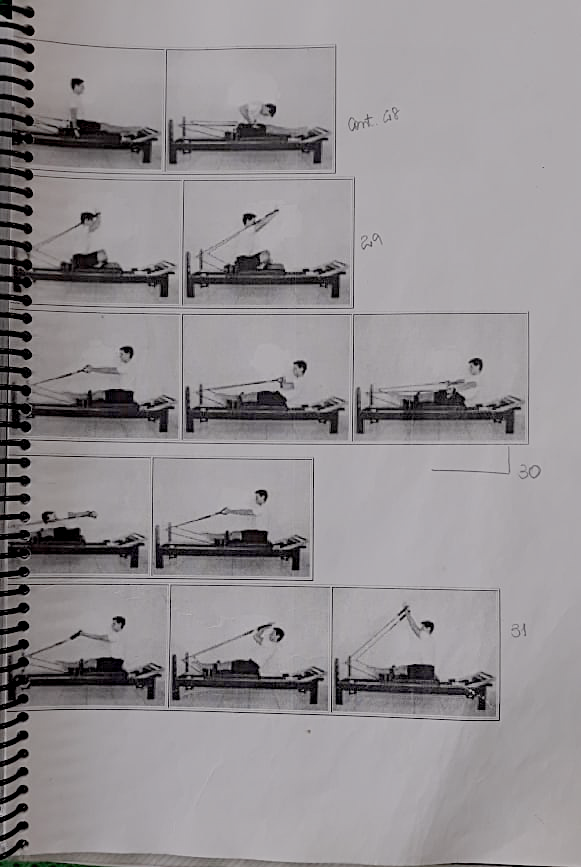 ant. 28
29
30
31